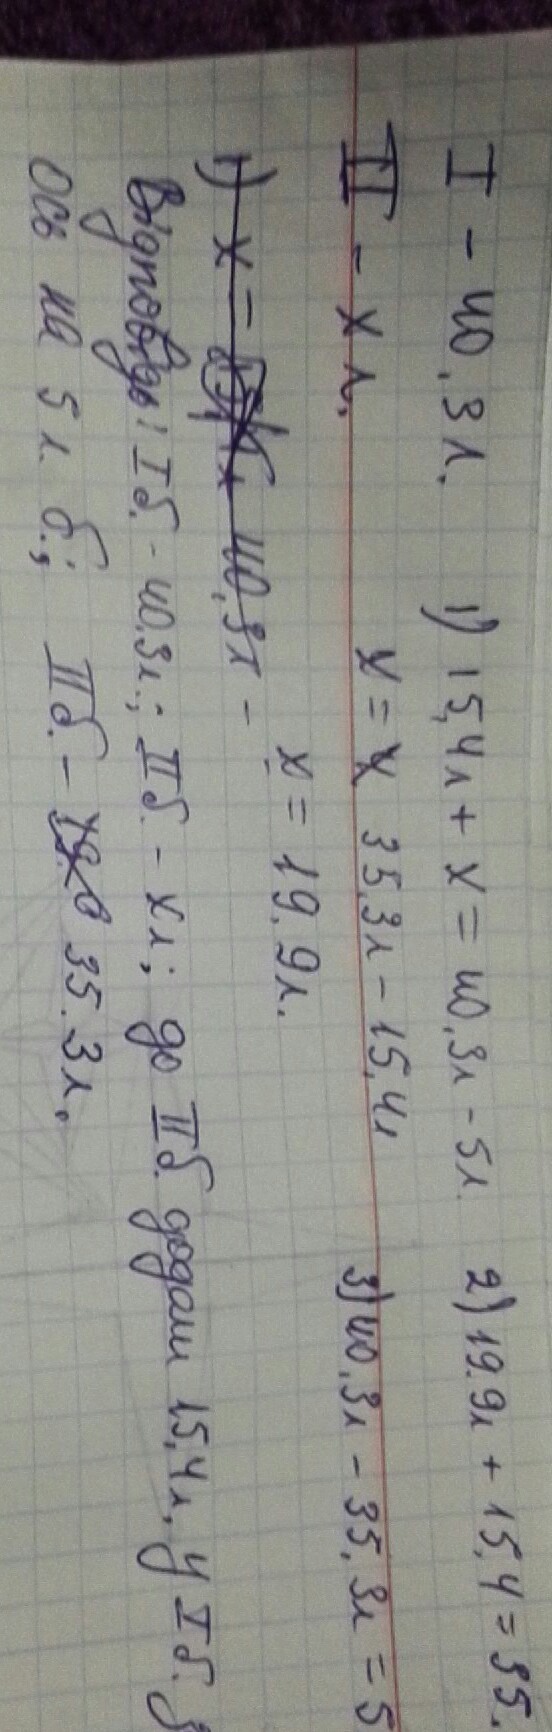 I - 40,3л. 1) 15,4л + x = 40,3л - 5л. 2) 19.9л + 15,4 = 35.
II - x л. x = x 35,3л - 15,4л 3) 40,3л - 35,3л = 5
x = 19,9л.
1) x = 40,3л -
Відповідь: I б. - 40,3л.; II б. - x л; до II б. додали 15,4л, у I б.
ось на 5 л б.; II б. - 35.3л.